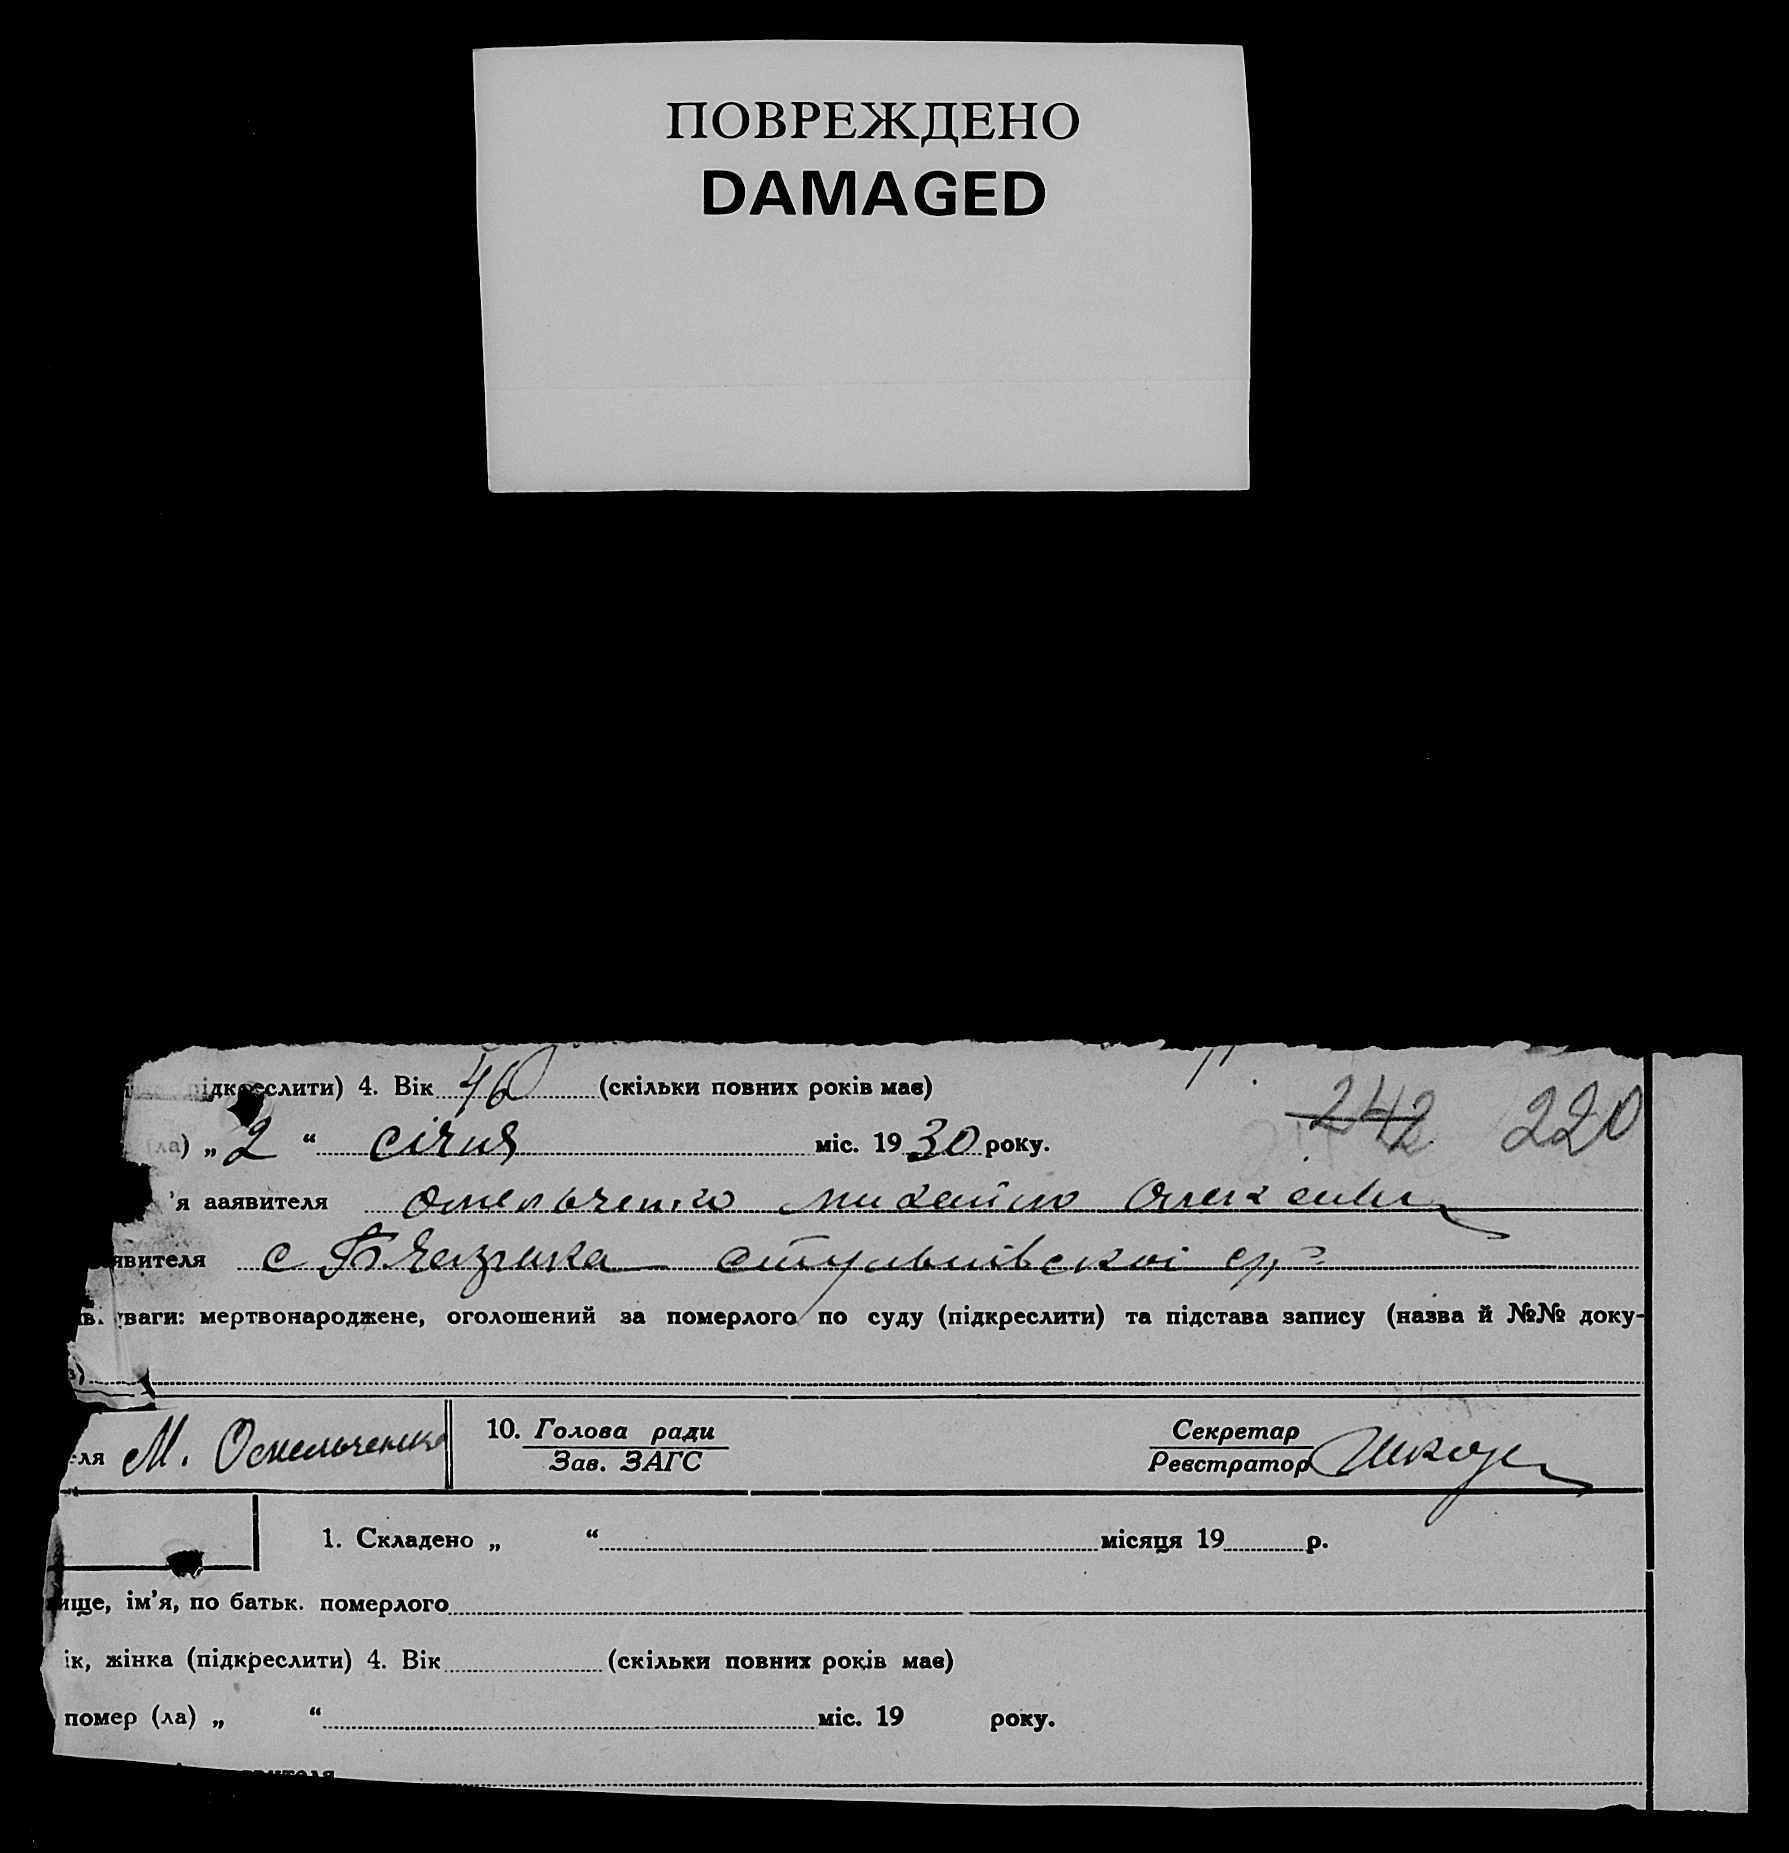 ПОВРЕЖДЕНО
DAMAGED
підкреслити) 4. Вік 46 (скільки повних років має)
242 220
(ла) „ 2 “ січня міс. 1930 року.
'я заявителя Омельченко Михайло Олексеевич
явителя с
уваги: мертвонароджене, оголошений за померлого по суду (підкреслити) та підстава запису (назва й №№ доку-
еля М. Омельченко 10. Голова ради Секретар
Зав. ЗАГС Реєстратор
1. Складено „ “ місяця 19 р.
ище, ім'я, по батьк. померлого
ік, жінка (підкреслити) 4. Вік (скільки повних років має)
помер (ла) „ “ міс. 19 року.